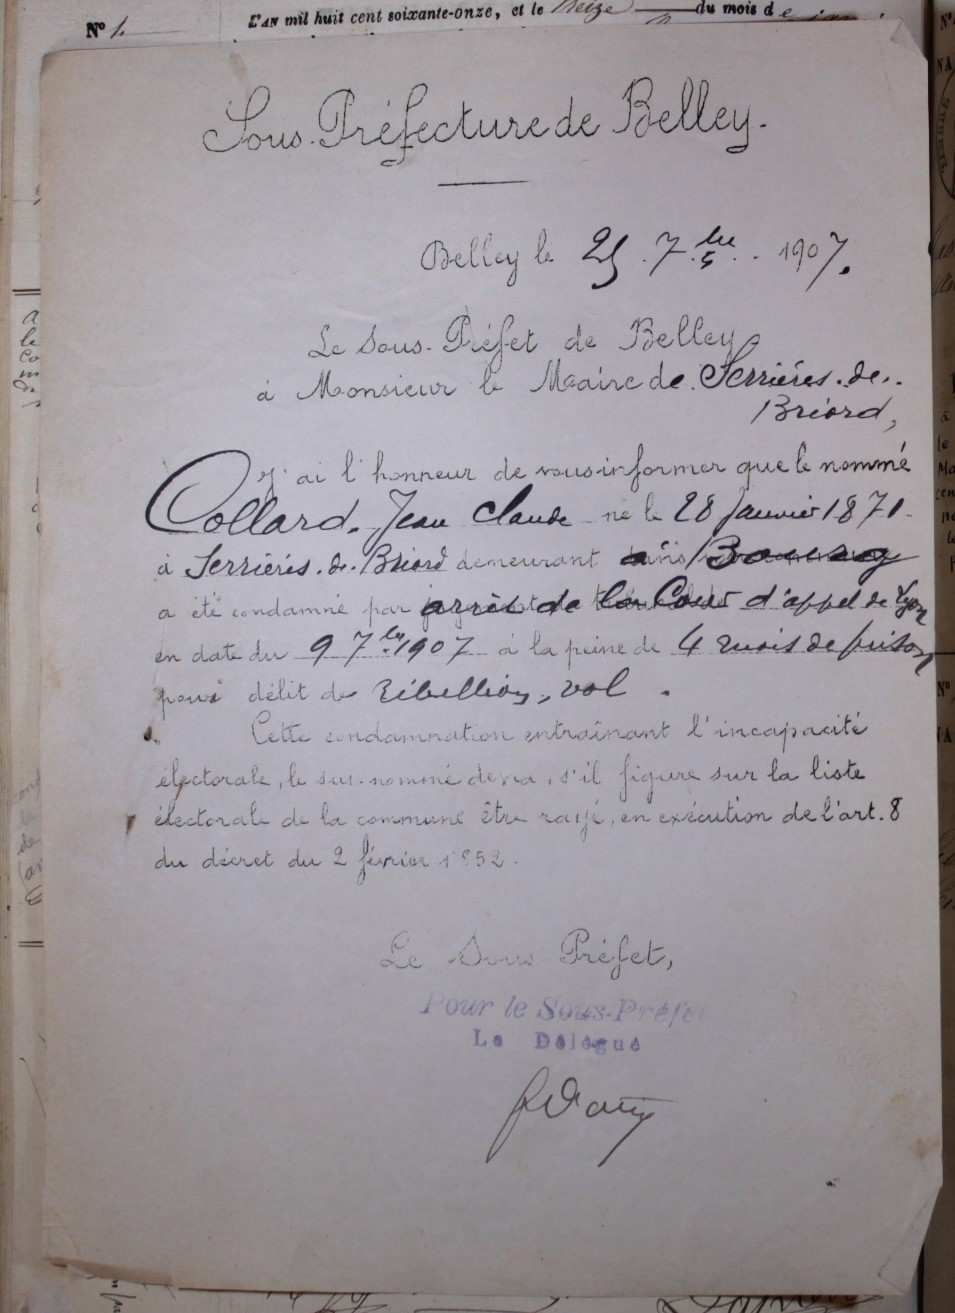 Nº 1. L'AN mil huit cent soixante-onze, et le seize du mois de
Sous-Préfecture de Belley.
Belley le 25 7bre 1907.
Le Sous-Préfet de Belley
à Monsieur le Maire de Serrières-de-
Briord,
J'ai l'honneur de vous informer que le nommé
Collard, Jean Claude né le 28 Janvier 1871
à Serrières-de-Briord demeurant à Bourg
a été condamné par arrêt de la Cour d'appel de Lyon
en date du 9 7bre 1907 à la peine de 4 mois de prison
pour délit de Rébellion, vol.
Cette condamnation entraînant l'incapacité
électorale, le sus-nommé devra, s'il figure sur la liste
électorale de la commune être rayé, en exécution de l'art. 8
du décret du 2 février 1852.
Le Sous Préfet,
Pour le Sous-Préfet
Le Délégué